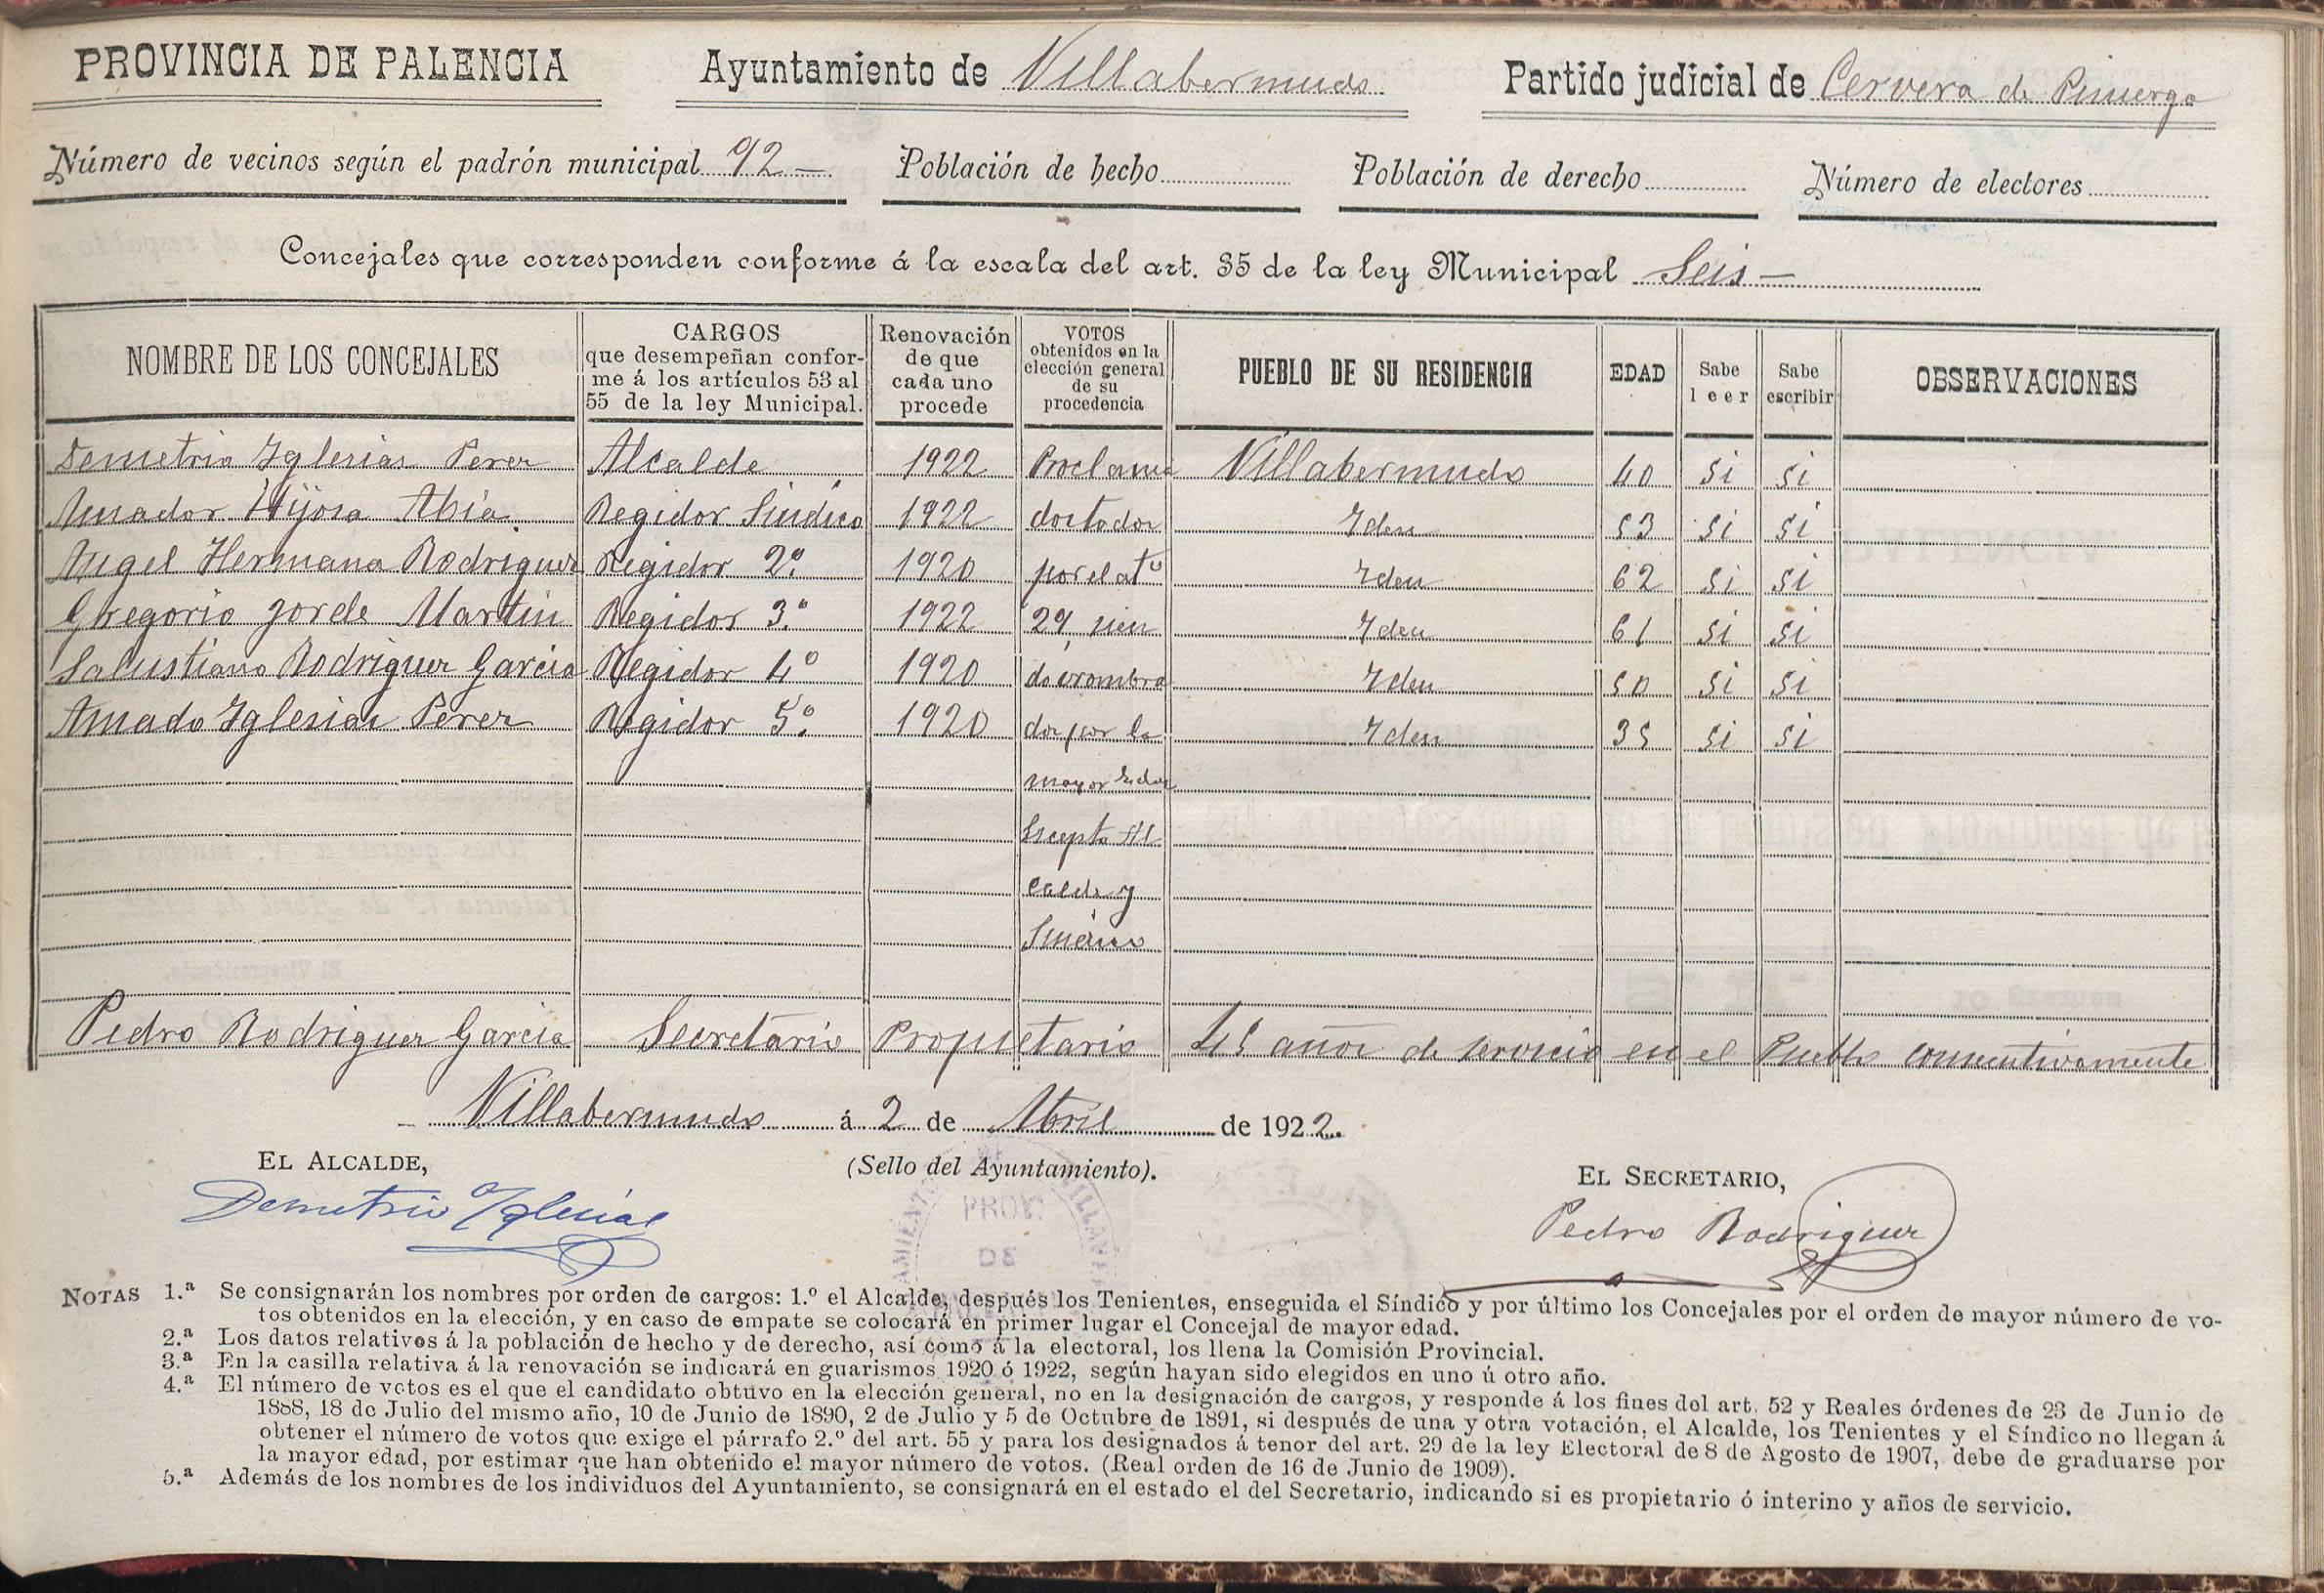 PROVINCIA DE PALENCIA Ayuntamiento de Villabermudo Partido judicial de Cervera de Pisuerga
Número de vecinos según el padrón municipal 92 Población de hecho Población de derecho Número de electores
Concejales que corresponden conforme á la escala del art. 35 de la ley Municipal Seis
NOMBRE DE LOS CONCEJALES CARGOS que desempeñan confor- me á los artículos 53 al 55 de la ley Municipal. Renovación de que cada uno procede VOTOS obtenidos en la elección general de su procedencia PUEBLO DE SU RESIDENCIA EDAD Sabe leer Sabe escribir OBSERVACIONES
Demetrio Yglesias Perez Alcalde 1922 Proclama Villabermudo 40 si si
Amador Hijosa Abia Regidor Sindico 1922 dos todos Yden 53 si si
Angel Hermana Rodriguez Regidor 2º 1920 por el atº Yden 62 si si
Gregorio Jorde Martin Regidor 3º 1922 29, sien Yden 61 si si
Salustiano Rodriguez Garcia Regidor 4º 1920 do nombra Yden 50 si si
Amado Yglesias Perez Regidor 5º 1920 dos por la Yden 35 si si
mayor Edad
Escepto Al
calde y
Sindico
Pedro Rodriguez Garcia Secretario Propietario 45 años de servicio en el Pueblo consecutivamente
Villabermudo á 2 de Abril de 1922.
EL ALCALDE, (Sello del Ayuntamiento). EL SECRETARIO,
Demetrio Yglesias Pedro Rodriguez
PROV.
DE
NOTAS 1.ª Se consignarán los nombres por orden de cargos: 1.º el Alcalde, después los Tenientes, enseguida el Síndico y por último los Concejales por el orden de mayor número de vo-
tos obtenidos en la elección, y en caso de empate se colocará en primer lugar el Concejal de mayor edad.
2.ª Los datos relativos á la población de hecho y de derecho, así como á la electoral, los llena la Comisión Provincial.
3.ª En la casilla relativa á la renovación se indicará en guarismos 1920 ó 1922, según hayan sido elegidos en uno ú otro año.
4.ª El número de votos es el que el candidato obtuvo en la elección general, no en la designación de cargos, y responde á los fines del art. 52 y Reales órdenes de 23 de Junio de
1888, 18 de Julio del mismo año, 10 de Junio de 1890, 2 de Julio y 5 de Octubre de 1891, si después de una y otra votación, el Alcalde, los Tenientes y el Síndico no llegan á
obtener el número de votos que exige el párrafo 2.º del art. 55 y para los designados á tenor del art. 29 de la ley Electoral de 8 de Agosto de 1907, debe de graduarse por
la mayor edad, por estimar que han obtenido el mayor número de votos. (Real orden de 16 de Junio de 1909).
5.ª Además de los nombres de los individuos del Ayuntamiento, se consignará en el estado el del Secretario, indicando si es propietario ó interino y años de servicio.